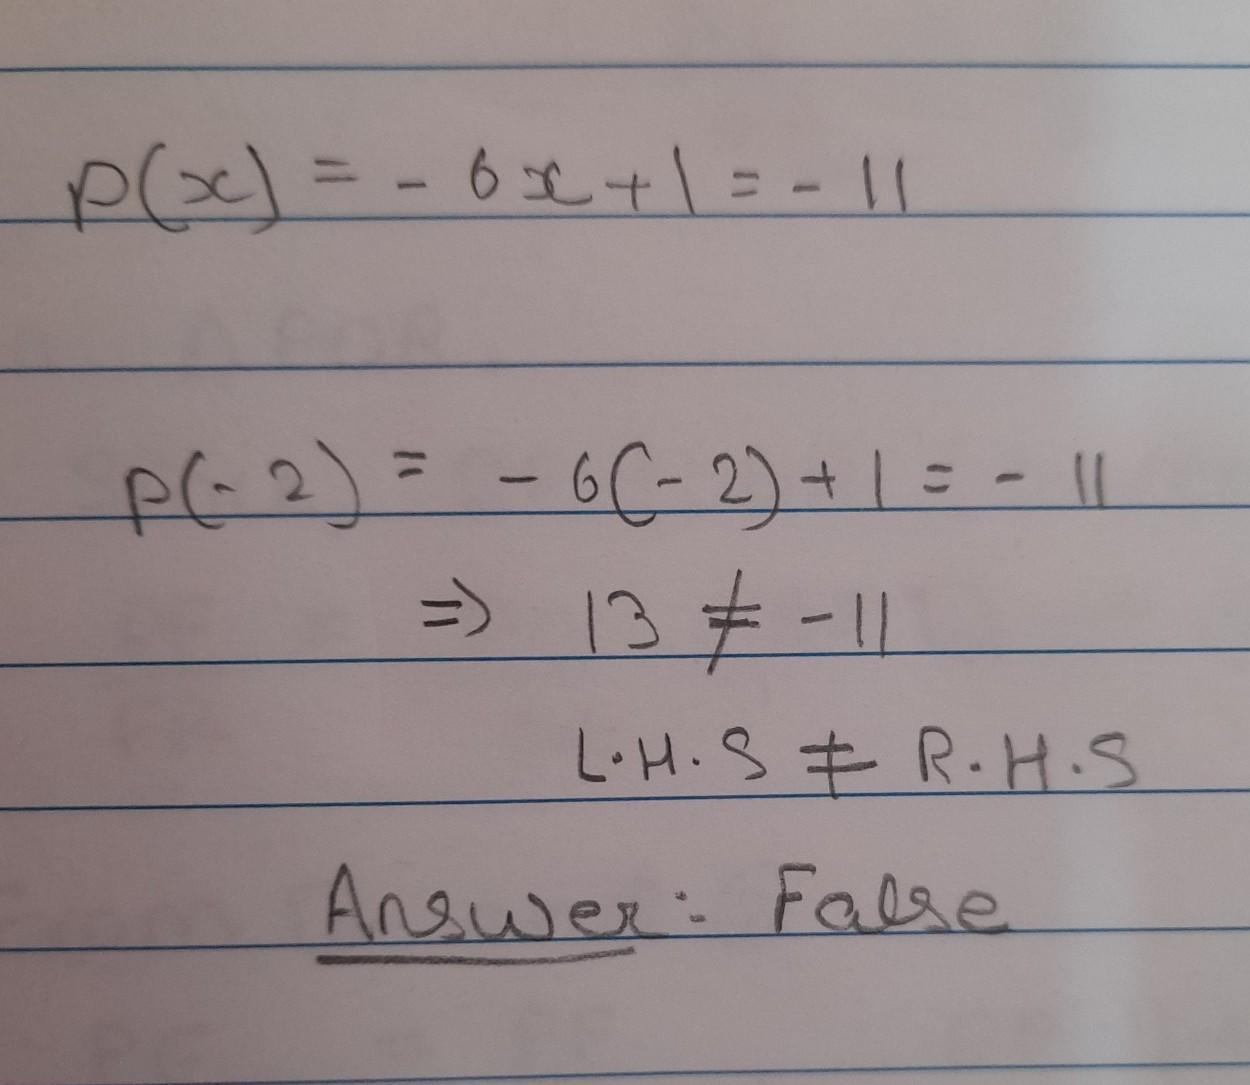 p(x) = - 6x + 1 = - 11
p(- 2) = - 6(- 2) + 1 = - 11
⇒ 13 ≠ - 11
L.H.S ≠ R.H.S
Answer: False